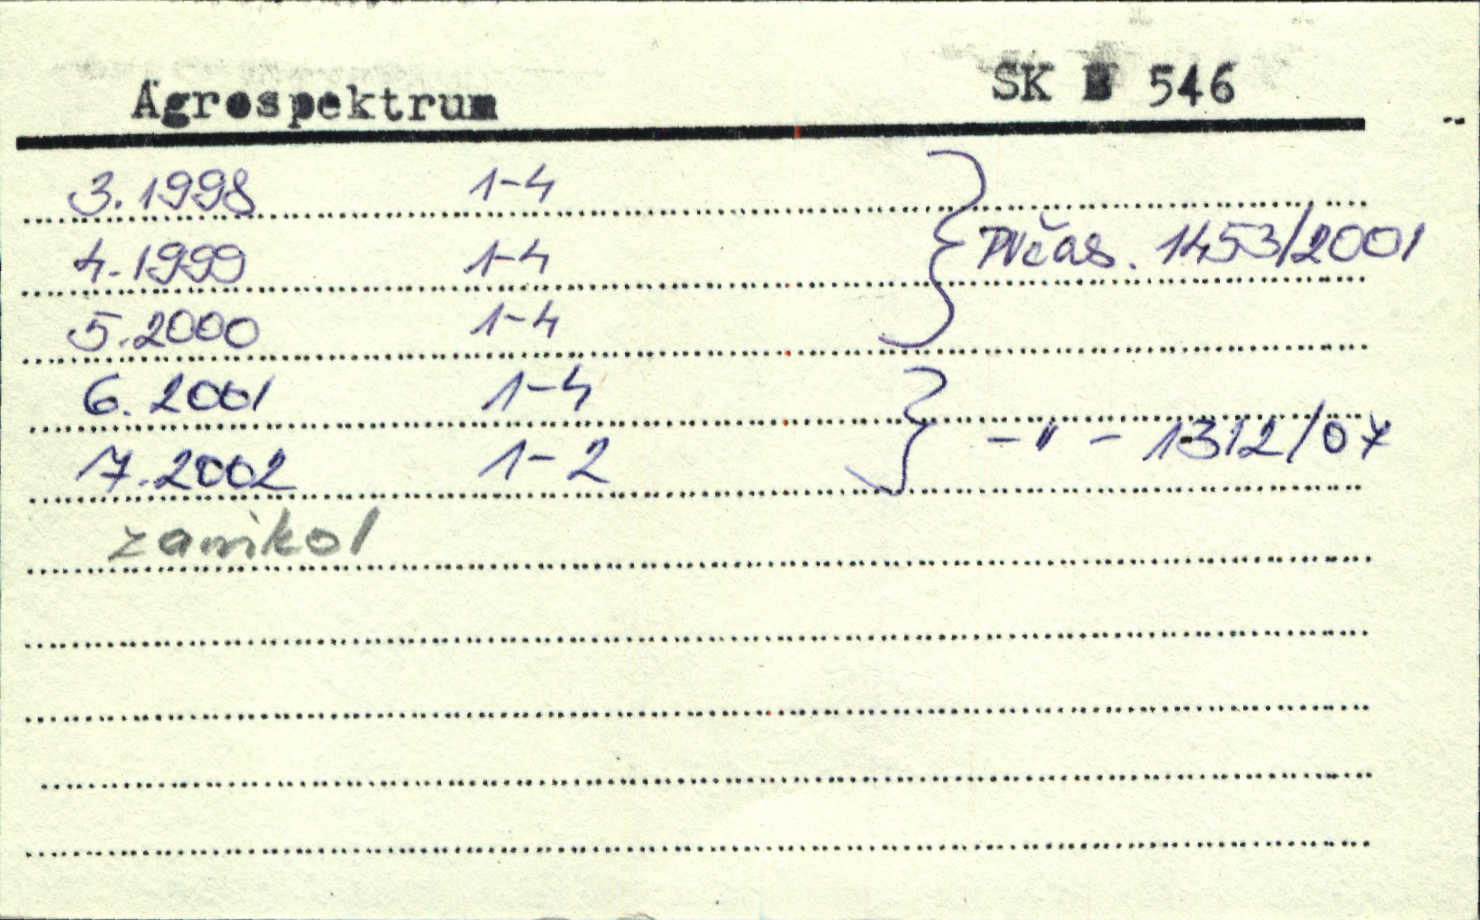 Agrospektrum SK B 546
3.1998 1-4
4.1999 1-4 PVčas. 1453/2001
5.2000 1-4
6.2001 1-4
7.2002 1-2 -"- 1312/07
zanikol